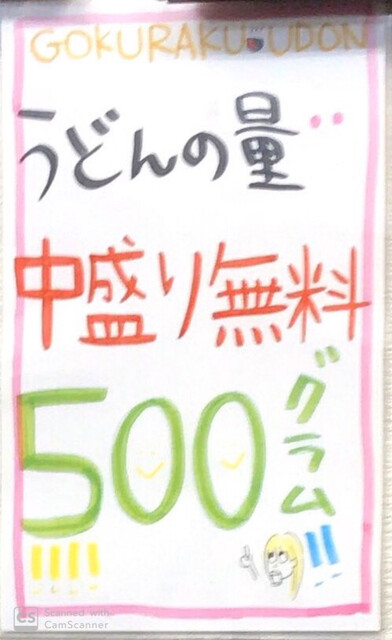 GOKURAKU UDON
うどんの量
中盛り無料
500グラム!!
!!!!
CS Scanned with
CamScanner